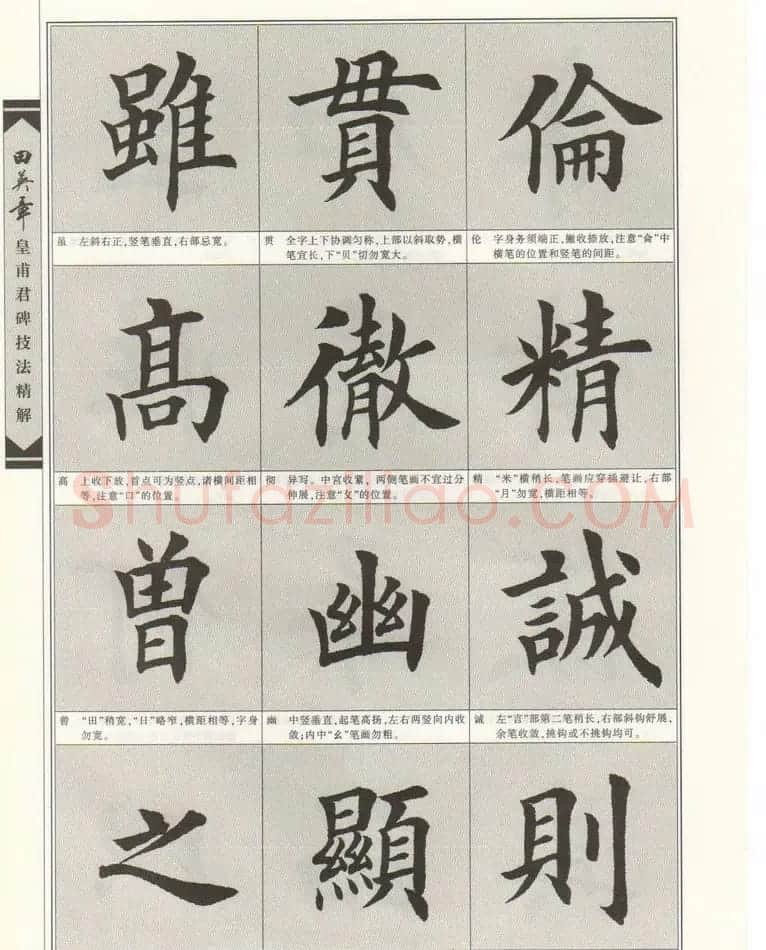 田英章
皇甫君碑技法精解
雖
貫
倫
虽 左斜右正，竖笔垂直，右部忌宽。
贯 全字上下协调匀称，上部以斜取势，横
笔宜长，下“贝”切勿宽大。
伦 字身务须端正，撇收捺放，注意“侖”中
横笔的位置和竖笔的间距。
高
徹
精
高 上收下放，首点可为竖点，诸横间距相
等，注意“口”的位置。
彻 异写。中宫收紧，两侧笔画不宜过分
伸展，注意“攵”的位置。
精 “米”横稍长，笔画应穿插避让，右部
“月”勿宽，横距相等。
Shufaziliao.COM
曾
幽
誠
曾 “田”稍宽，“日”略窄，横距相等，字身
勿宽。
幽 中竖垂直，起笔高扬，左右两竖向内收
敛；内中“幺”笔画勿粗。
诚 左“言”部第二笔稍长，右部斜钩舒展，
余笔收敛，挑钩或不挑钩均可。
之
顯
則